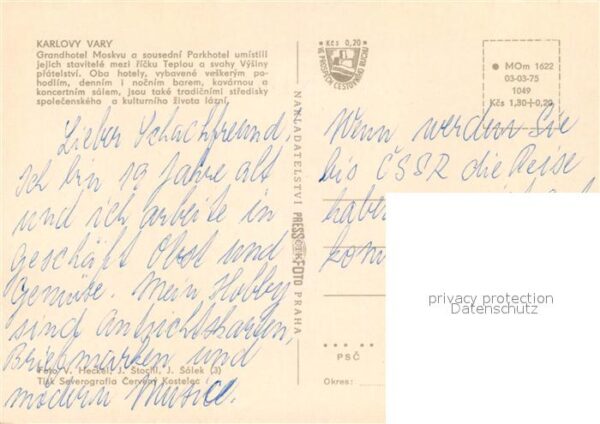 KARLOVY VARY
Grandhotel Moskvu a sousední Parkhotel umístili
jejich stavitelé mezi říčku Teplou a svahy Výšiny
přátelství. Oba hotely, vybavené veškerým po-
hodlím, denním i nočním barem, kavárnou a
koncertním sálem, jsou také tradičními středisky
společenského a kulturního života lázní.
Lieber Schachfreund,
Ich bin 19 Jahre alt
und ich arbeite in
geschäft Obst und
Gemüse. Mein Hobby
sind antzichtskarten,
Briefmarken und
modern Musice.
Foto V. Heckel, J. Stochl, J. Sálek (3)
Tisk Severografia Červený Kostelec
NAKLADATELSTVÍ PRESSFOTO PRAHA
Kčs 0,20
VE PROSPĚCH CESTOVNÍHO RUCHU
MOm 1622
03-03-75
1049
Kčs 1,30+0,20
Wenn werden Sie
bis ČSSR die Reise
haben
kom
PSČ
Okres:
privacy protection
Datenschutz